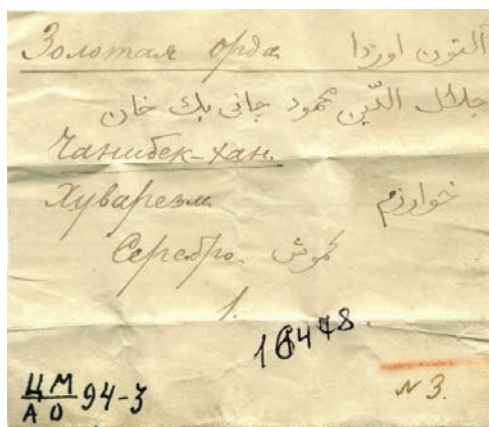 Золотая орда آلتون اوردا
جلال الدّين محمود جانى بك خان
Чанибек-хан.
Хуварезм خوارزم
Серебро. كموش
1.
18478.
ЦМ
АО 94-3
№3.